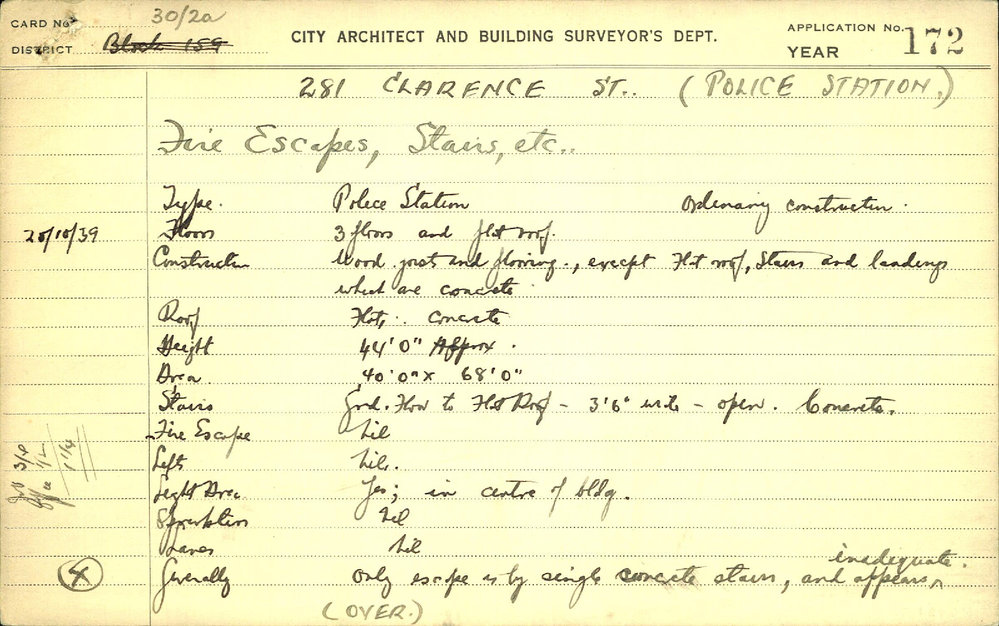 CARD No. 30/2a
DISTRICT Block 159
CITY ARCHITECT AND BUILDING SURVEYOR'S DEPT.
APPLICATION No. 172
YEAR
281 CLARENCE ST.. (POLICE STATION.)
Fire Escapes, Stairs, etc..
Type. Police Station Ordinary construction.
20/10/39 Floors 3 floors and flat roof.
Construction Wood joist and flooring., except Flat roof, Stairs and landings
which are concrete
Roof Flat. concrete
Height 44'0" Approx.
Area. 40'0" x 68'0"
Stairs Grd. Floor to Flat Roof - 3'6" wide - open. Concrete.
Fire Escape Nil
Lifts Nil.
Light Area Yes; in centre of bldg.
Sprinklers Nil
Lanes Nil
Generally Only escape is by single concrete stairs, and appears inadequate.
(OVER.)
3/4
1/2
1 1/4
4